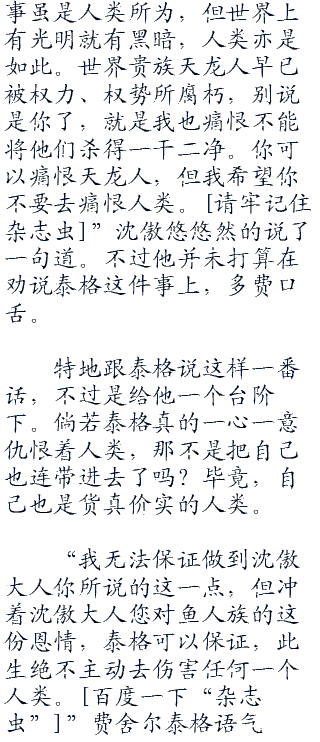 事虽是人类所为，但世界上
有光明就有黑暗，人类亦是
如此。世界贵族天龙人早已
被权力、权势所腐朽，别说
是你了，就是我也痛恨不能
将他们杀得一干二净。你可
以痛恨天龙人，但我希望你
不要去痛恨人类。[请牢记住
杂志虫]”沈傲悠悠然的说了
一句道。不过他并未打算在
劝说泰格这件事上，多费口
舌。
特地跟泰格说这样一番
话，不过是给他一个台阶
下。倘若泰格真的一心一意
仇恨着人类，那不是把自己
也连带进去了吗？毕竟，自
己也是货真价实的人类。
“我无法保证做到沈傲
大人你所说的这一点，但冲
着沈傲大人您对鱼人族的这
份恩情，泰格可以保证，此
生绝不主动去伤害任何一个
人类。[百度一下“杂志
虫”]”费舍尔泰格语气